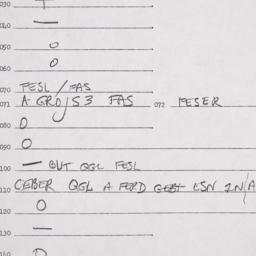 030
040 —
050 O
060 O
070 FESL / FAS
071 A GROJS 3 FAS 072 FESER
080 O
090 O
100 — BUT QGL FESL
110 CEBER QGL A FERD LSN IN/A
120 O
130 —
140 O